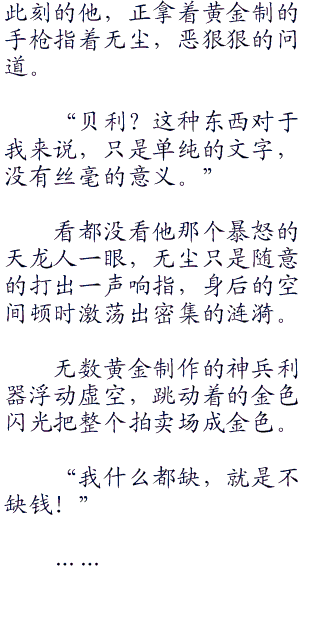 此刻的他，正拿着黄金制的
手枪指着无尘，恶狠狠的问
道。
“贝利？这种东西对于
我来说，只是单纯的文字，
没有丝毫的意义。”
看都没看他那个暴怒的
天龙人一眼，无尘只是随意
的打出一声响指，身后的空
间顿时激荡出密集的涟漪。
无数黄金制作的神兵利
器浮动虚空，跳动着的金色
闪光把整个拍卖场成金色。
“我什么都缺，就是不
缺钱！”
... ...